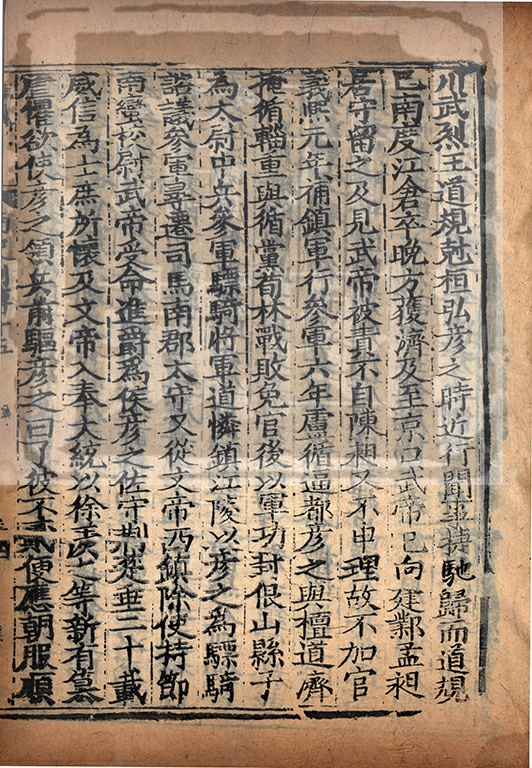 川武烈王道規尅桓弘彦之時近行聞事捷馳歸而道規
已南度江倉卒晚方獲濟及至京口武帝已向建鄴孟昶
居守留之及見武帝被責不自陳昶又不申理故不加官
義熙元年補鎮軍行參軍六年盧循逼都彦之與檀道濟
掩循輜重與循黨荀林戰敗免官後以軍功封佷山縣子
為太尉中兵參軍驃騎將軍道憐鎮江陵以彦之為驃騎
諮議參軍尋遷司馬南郡太守又從文帝西鎮除使持節
南蠻校尉武帝受命進爵為侯彦之佐守荆楚垂二十載
威信為士庶所懷及文帝入奉大統以徐羡之等新有篡
虐懼欲使彦之領兵前驅彦之曰了彼不貳便應朝服順